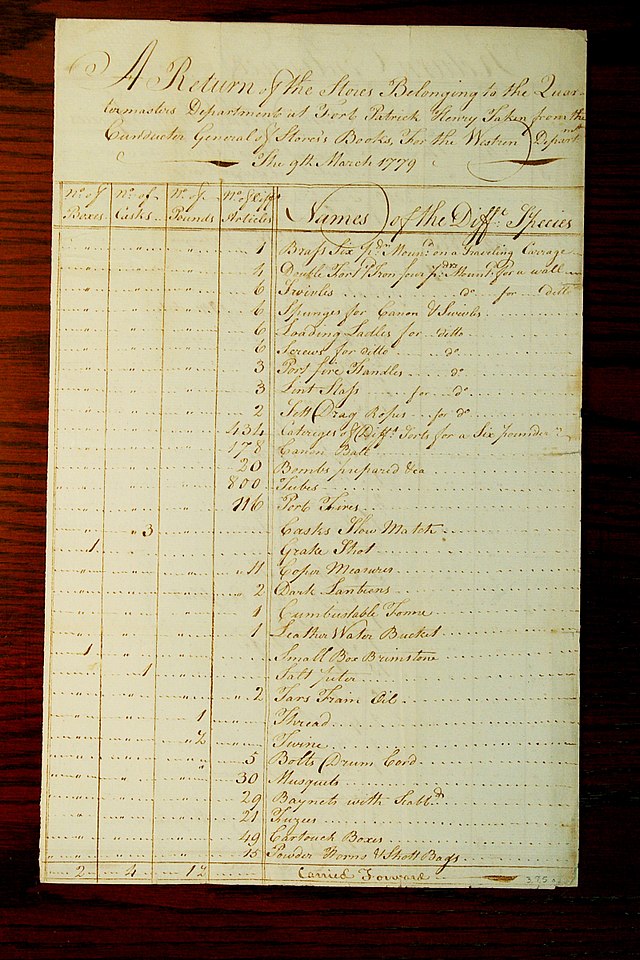 A Return of the Stores Belonging to the Quar-
termasters Department at Fort Patrick Henry Taken from the
Conductor General of Stores's Books, For the Western Departmt
The 9th March 1779
No. of Boxes | No. of Casks | No. of Pounds | No. of Articles | Names of the Difft. Species
1 Brass Six pdr. Mound. on a traveling Carrage
4 Double Fort'd Iron four pdrs. Mount. for a wall
6 Swivles do for ditto
6 Spunges for Canon & Swivls
6 Loading Ladles for ditto
6 Screws for ditto do
3 Port fire Handles do
3 Lint Staffs for do
2 Sett Drag Ropes for do
434 Catereges of Difft. Sorts for a Six pounder
178 Canon Ball
20 Bombs prepared &ca
800 Tubes
116 Port Fires
3 Casks Slow Match
1 Grake Shot
11 Coper Measures
2 Dark Lanterns
1 Cumbustable
1 Leather Water Bucket
1 Small Box Brimstone
1 Salt
2 Jars Train Oil
1 Thread
2 Twine
5 Bolts Drum Cord
30 Musquets
29 Baynets with Scabbd
21 Fuzees
49 Cartouch Boxes
15 Powder Horns & Shott Bags
2 4 12 Carried Forward